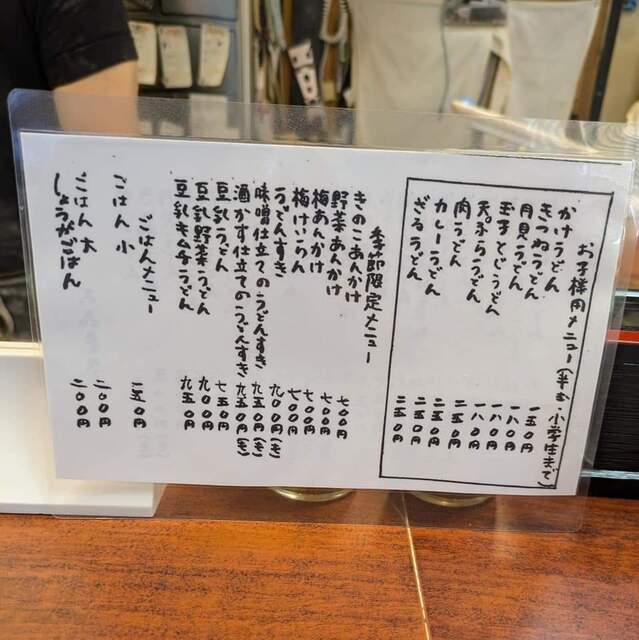 お子様用メニュー(半玉・小学生まで)
かけうどん 一五〇円
きつねうどん 一八〇円
月見うどん 一八〇円
玉子とじうどん 一八〇円
天ぷらうどん 二五〇円
肉うどん 二五〇円
カレーうどん 二五〇円
ざるうどん 二五〇円
季節限定メニュー
きのこあんかけ 七〇〇円
野菜あんかけ 七〇〇円
梅あんかけ 七〇〇円
梅けいらん 七〇〇円
うどんすき 九〇〇円
味噌仕立てのうどんすき 九五〇円
酒かす仕立てのうどんすき 九五〇円
豆乳うどん 七五〇円
豆乳野菜うどん 九〇〇円
豆乳キムチうどん 九五〇円
ごはんメニュー
ごはん 小 一五〇円
ごはん 大 二〇〇円
しょうがごはん 二〇〇円